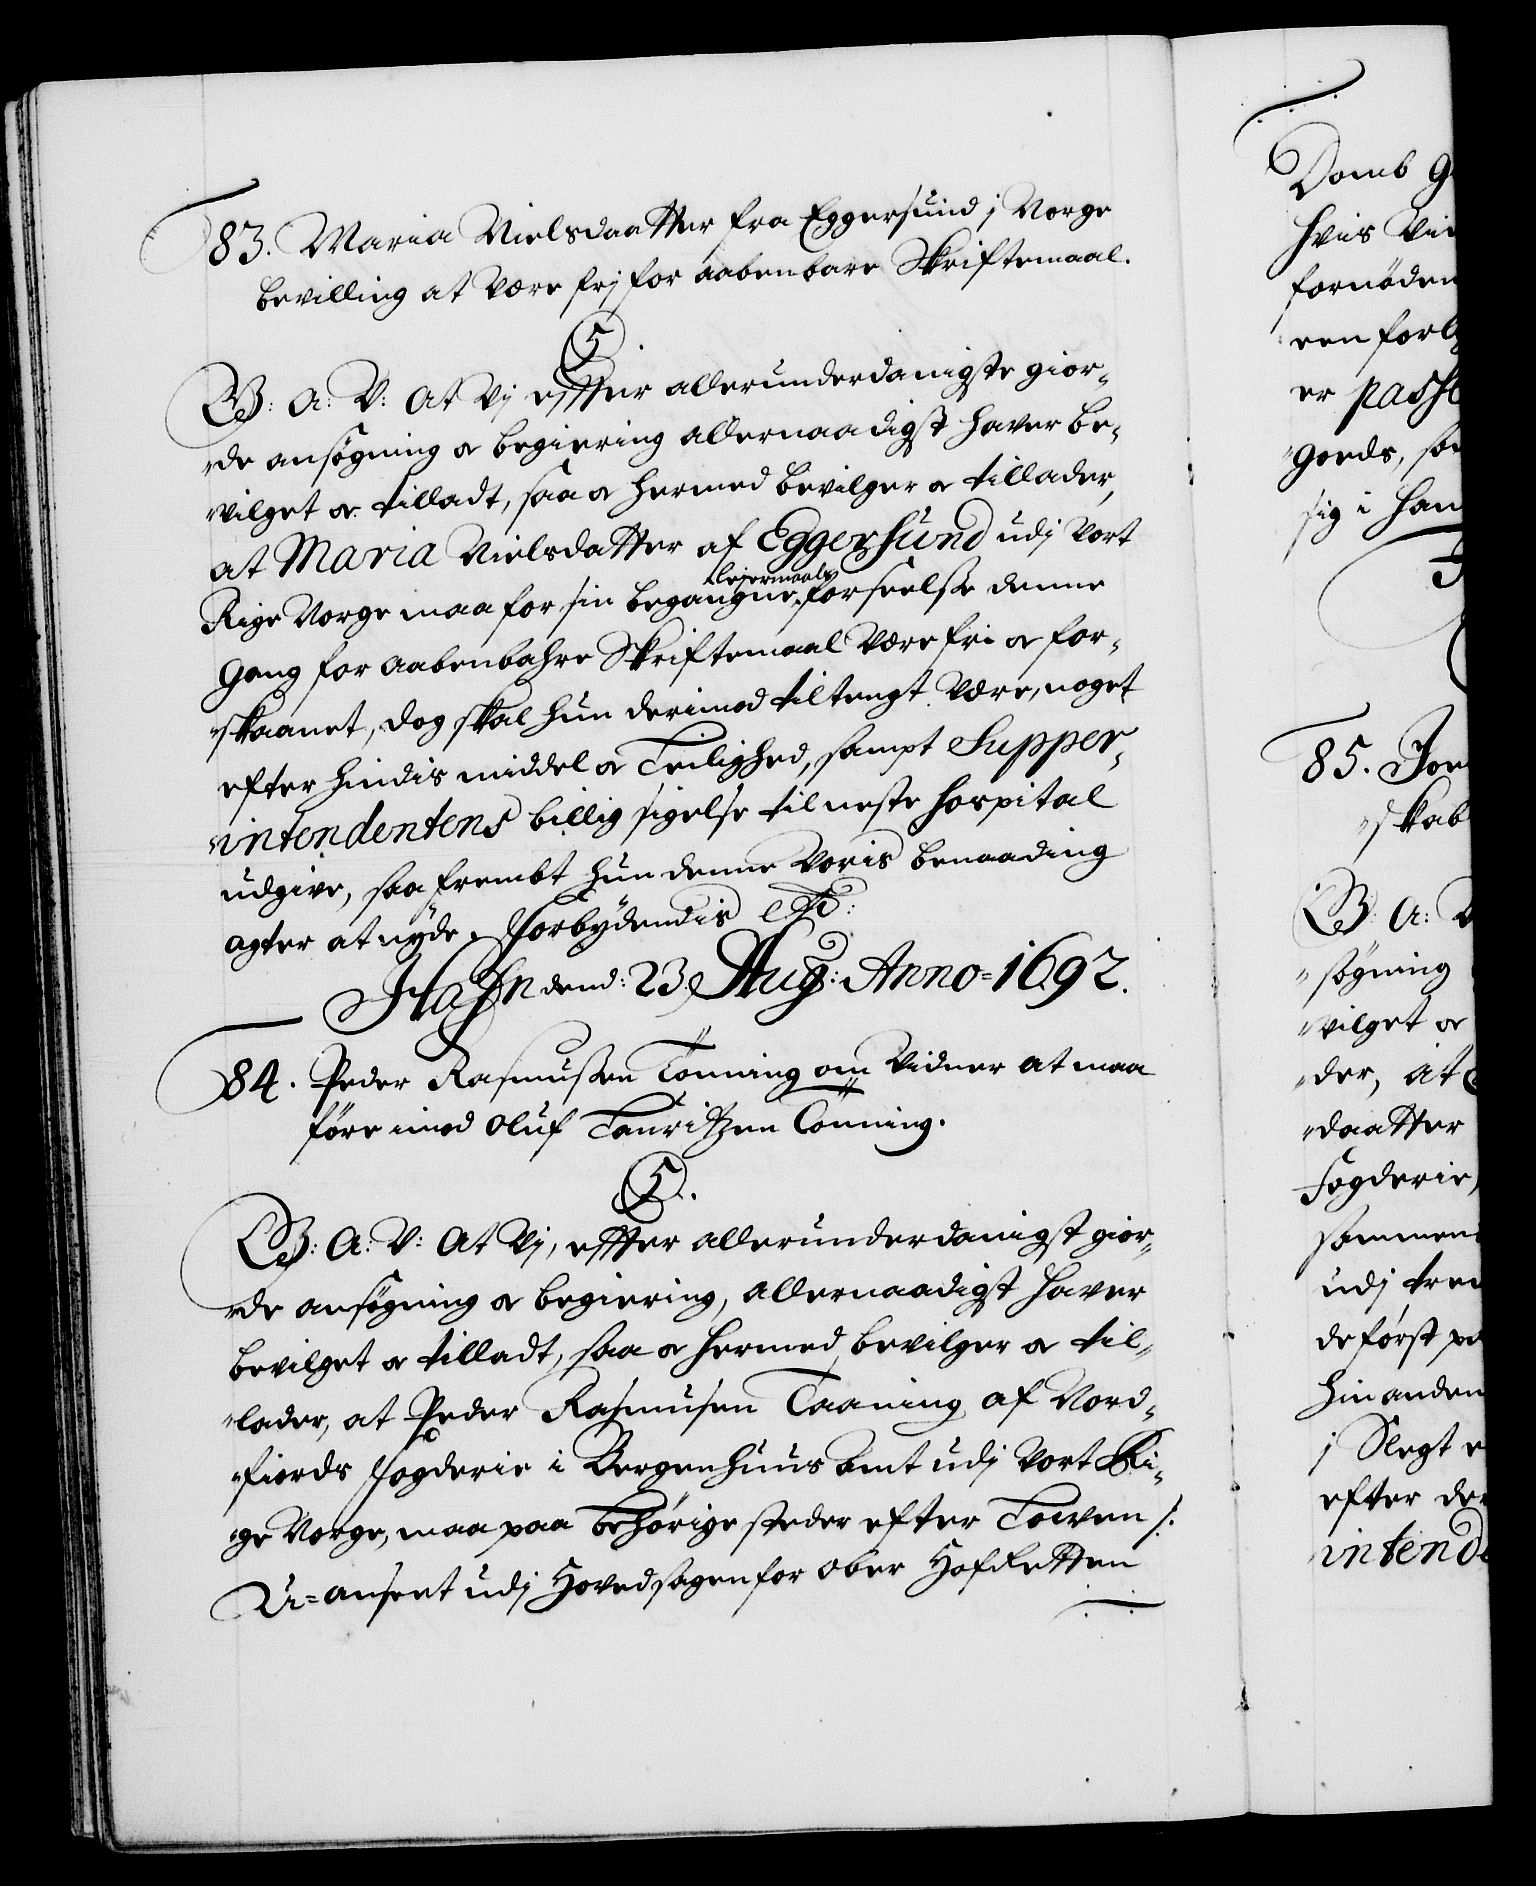 83. Maria Nielsdaatter fra Eggersund j Norge
bevilling at være frj for aabenbare Skriftemaal.
C5
G: A: V: At Vj effter allerunderdanigste gior-
de ansøgning oc begiering allernaadigst haver be-
vilget oc tilladt, saa oc hermed bevilger oc tillader,
at Maria Nielsdatter af Eggersund udj Vort
Rige Norge maa for sin begangne lejermaals forseelse denne
gang for aabenbahre Skriftemaal være fri oc for-
skaanet, dog skal hun derimod tiltengt være, noget
efter hindis middel oc Leilighed, sampt Supper-
intendentens billig sigelse til neste Hospital
udgive, saa frembt hun denne Voris benaading
agter at nyde. Forbydendis etc:
Hafn dend: 23. Aug: Anno=1692.
84. Peder Rasmussen Tönning om Vidner at maa
före imod Oluf Lauritzen Tönning.
C5.
G: A: V: At Vj, effter allerunderdanigst gior-
de ansøgning oc begiering, allernaadigst haver
bevilget oc tilladt, saa oc hermed bevilger oc til-
lader, at Peder Rasmusen Taaning af Nord-
fiords Fogderie i Bergenhuus Amt udj Vort Ri-
ge Norge, maa paa behörige steder efter Lowen /:
U=anseet udj Hovedsagen for Ober HofRetten
Domb
hvis
fornöden
een
er
goeds,
sig i
85.
skab
G: A:
søgning
vilget oc
der, at
daatter
Fogderie,
udj
de först
hinanden
j Slegt
efter
intend